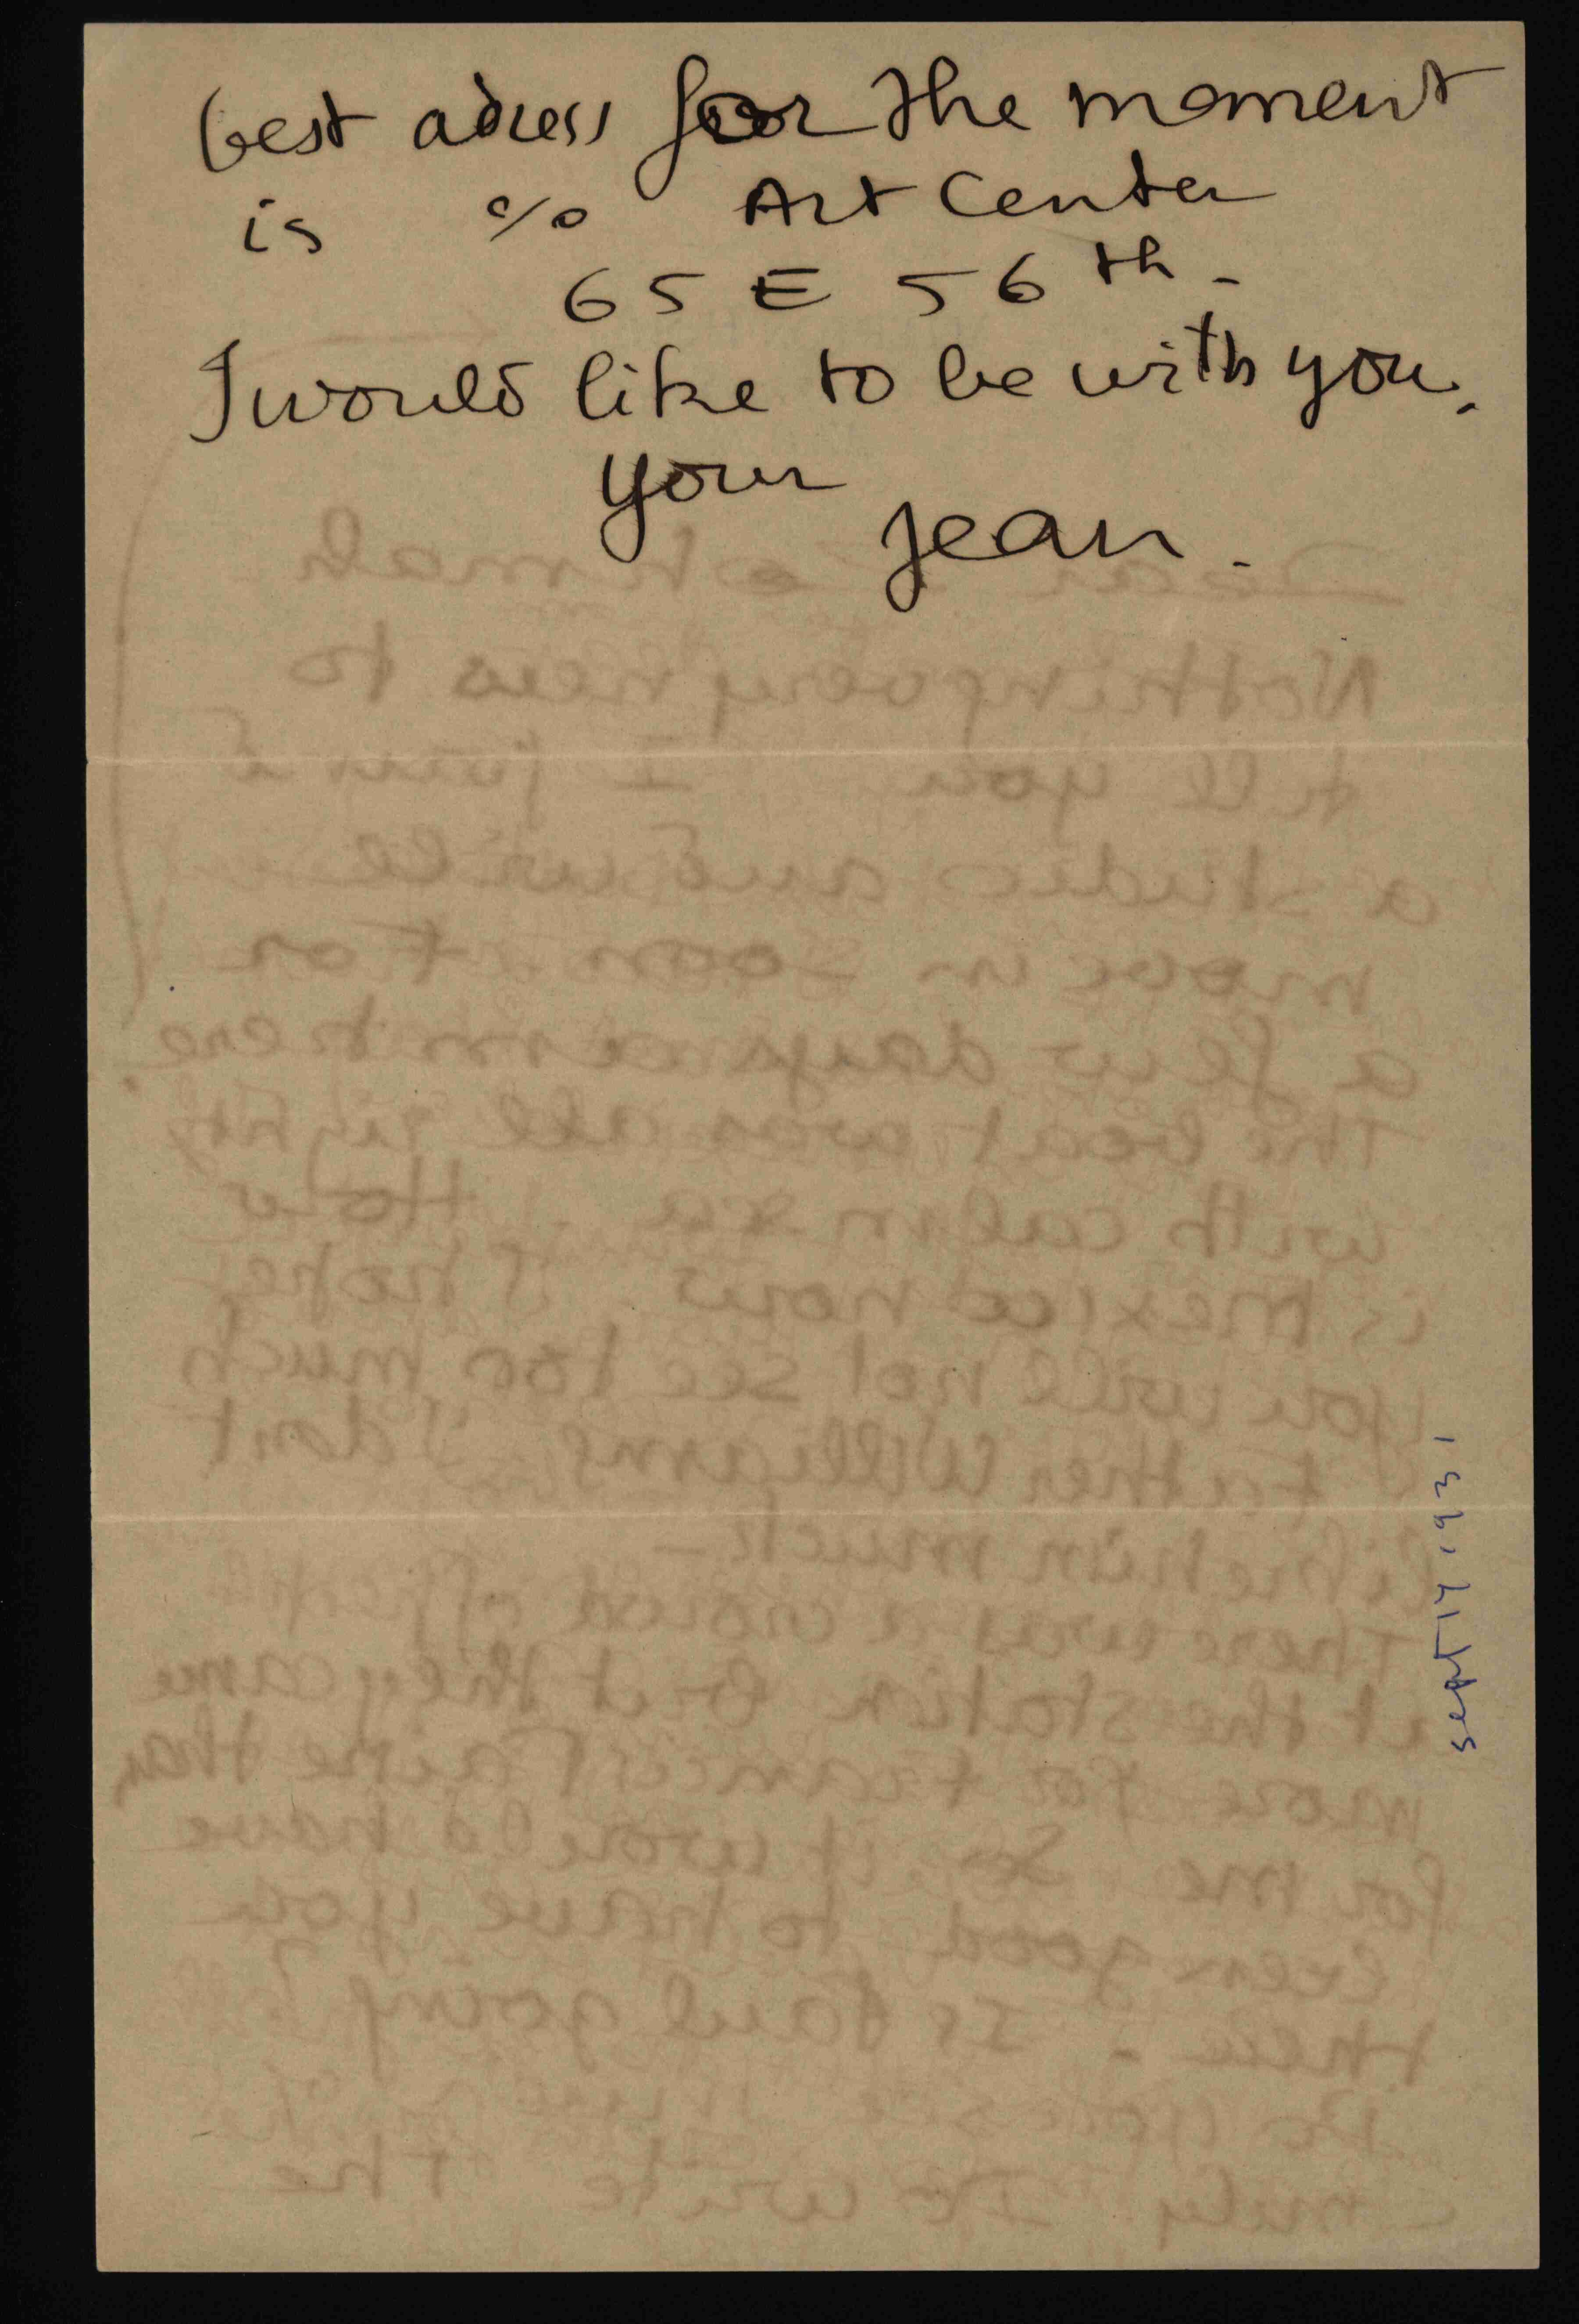 best adress for the moment
is c/o Art Center
65 E 56th -
I would like to be with you.
your
Jean.
sept 17 1931